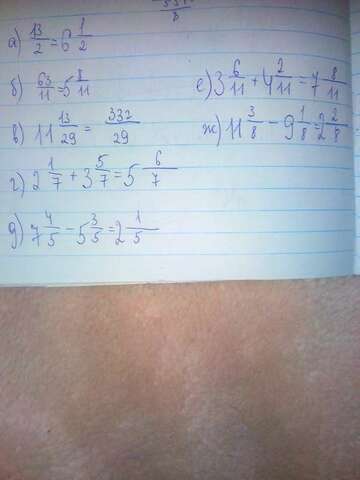 а) 13/2 = 6 1/2
б) 63/11 = 5 8/11
в) 11 13/29 = 332/29
г) 2 1/7 + 3 5/7 = 5 6/7
д) 7 4/5 - 5 3/5 = 2 1/5
е) 3 6/11 + 4 2/11 = 7 8/11
ж) 11 3/8 - 9 1/8 = 2 2/8